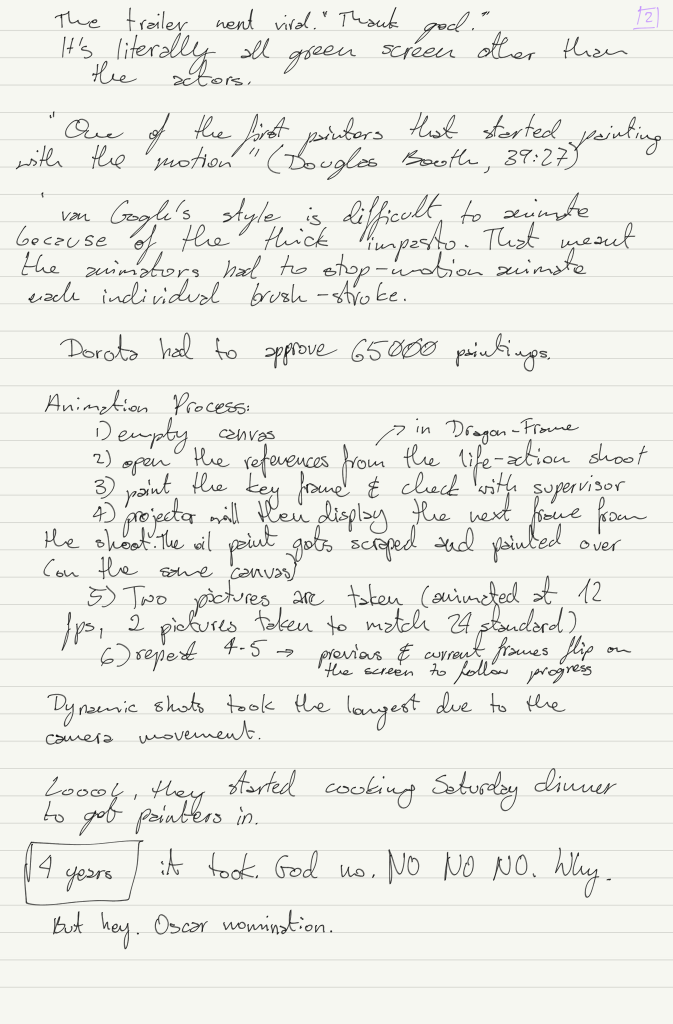 2
The trailer went viral. "Thank god."
It's literally all green screen other than
the actors.
"One of the first painters that started painting
with the motion" (Douglas Booth, 39:27)
van Gogh's style is difficult to animate
because of the thick impasto. That meant
the animators had to stop-motion animate
each individual brush-stroke.
Dorota had to approve 65000 paintings.
Animation Process:
1) empty canvas
in Dragon-Frame
2) open the references from the life-action shoot
3) paint the key frame & check with supervisor
4) projector will then display the next frame from
the shoot. The oil paint gets scraped and painted over
(on the same canvas)
5) Two pictures are taken (animated at 12
fps, 2 pictures taken to match 24 standard)
6) repeat 4-5 → previous & current frames flip on
the screen to follow progress
Dynamic shots took the longest due to the
camera movement.
Loool, they started cooking Saturday dinner
to get painters in.
4 years it took. God no. NO NO NO. Why.
But hey. Oscar nomination.